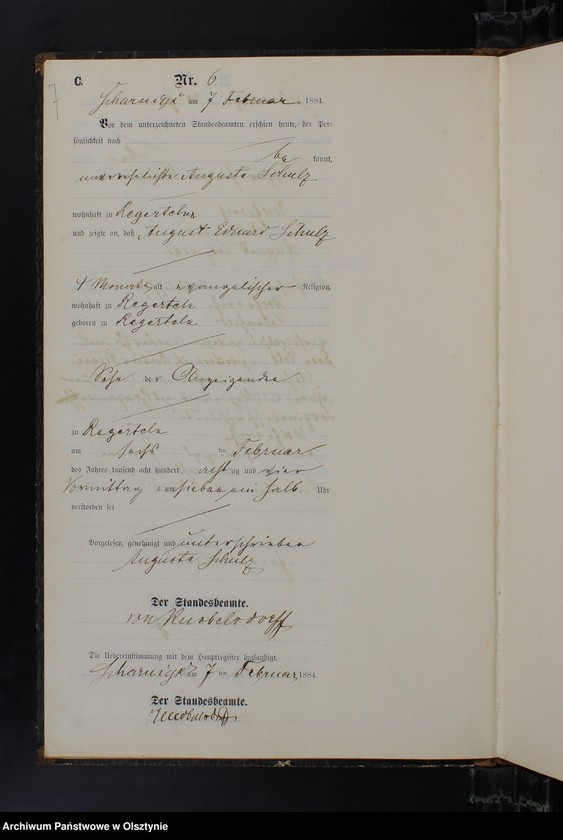 C. Nr. 6
7
Scharnigk am 7 Februar 1884.
Vor dem unterzeichneten Standesbeamten erschien heute, der Per-
sönlichkeit nach
be kannt,
unverehelichte Auguste Schulz
wohnhaft zu Regerteln
und zeigte an, daß August Eduard Schulz
4 Monate alt evangelischer Religion,
wohnhaft zu Regerteln
geboren zu Regerteln
Sohn der Anzeigenden
zu Regerteln
am sechs ten Februar
des Jahres tausend acht hundert acht zig und vier
Vormittag s um sieben ein halb Uhr
verstorben sei
Vorgelesen, genehmigt und unterschrieben
Auguste Schulz
Der Standesbeamte.
von Knobelsdorff
Die Uebereinstimmung mit dem Hauptregister beglaubigt.
Scharnigk am 7 ten Februar 1884.
Der Standesbeamte.
Archiwum Państwowe w Olsztynie